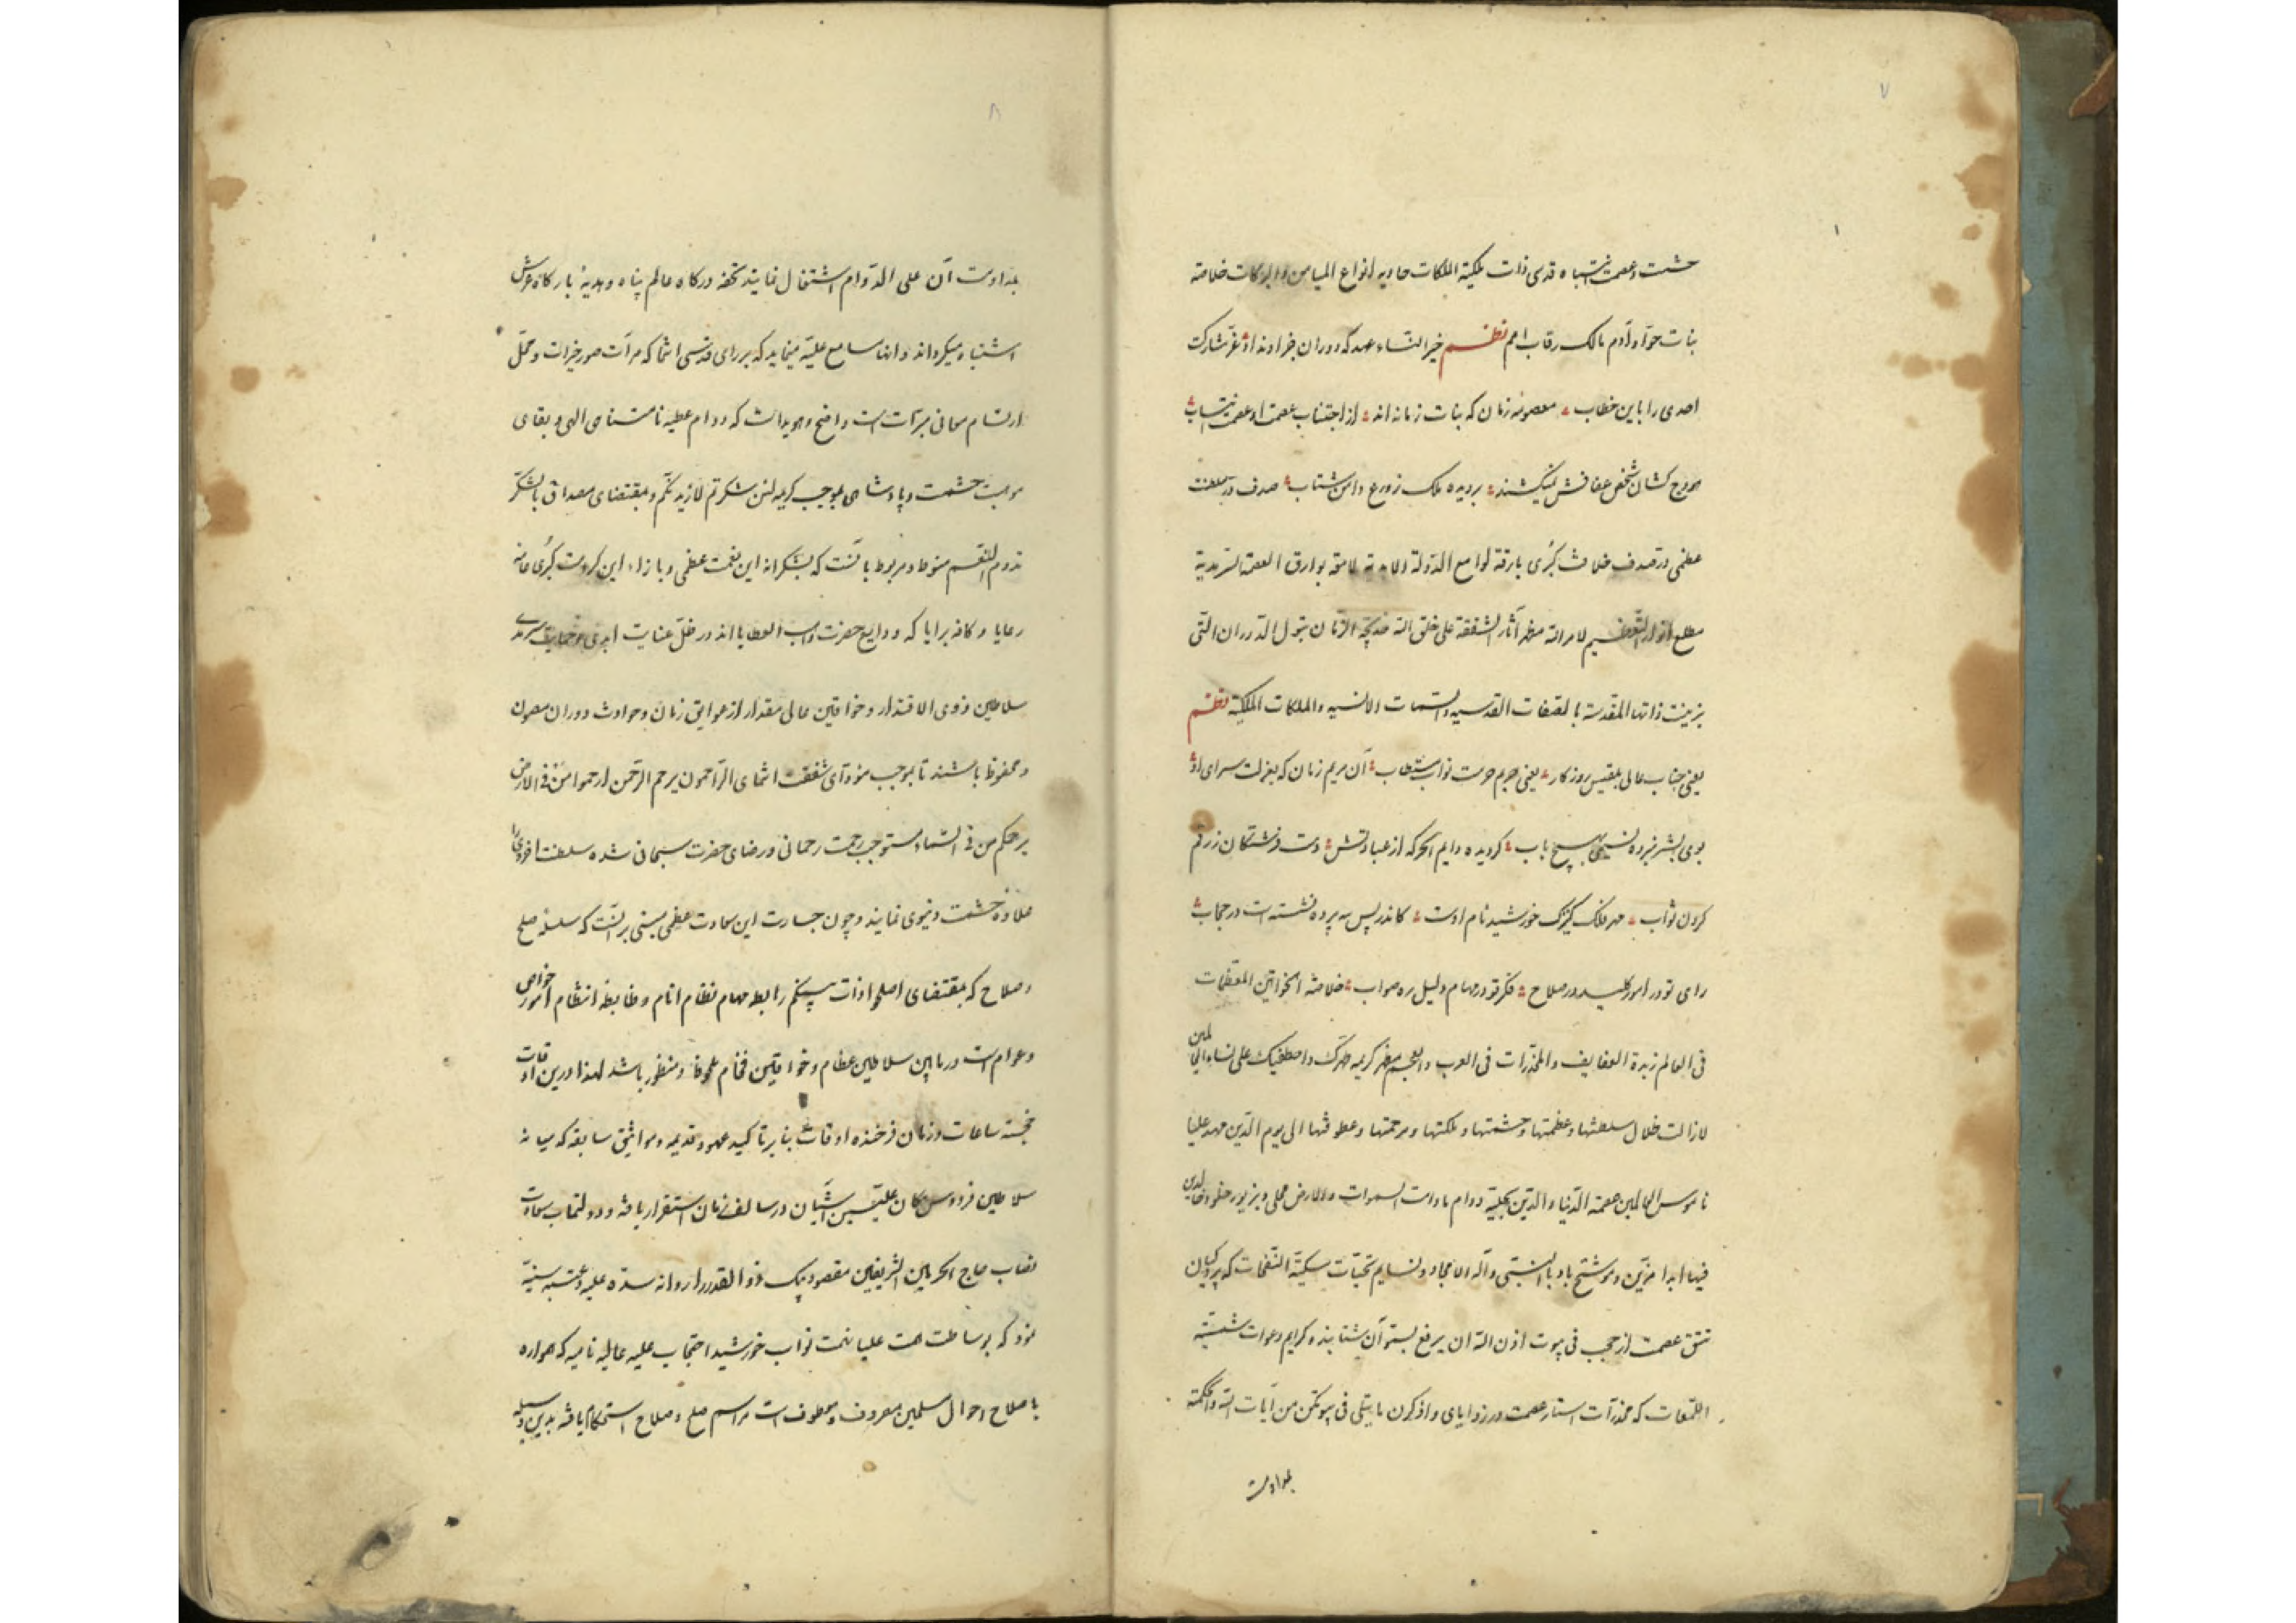 ۷
حشمت و عصمت انتباه قدسی ذات ملکیة الملکات حاویه انواع المیامن و البرکات خلاصه
بنات حوا و آدم مالک رقاب امم نظم خیر النساء عهد که دوران خداوند از غرّ شارکت
احدی را باین خطاب معصومه زمان که بنات زمانه اند از اجتناب عصمت او عصمت انتساب
هودج کشان شخص عفافش نمیکشند بر دیده ملک ز ورع دامن شتاب صدف در سلطنت
عظمی در صدف خلافت کبری بارقه لوامع الدولة الابدیه لامعه بوارق العصمة السرمدیه
مطلع انوار التعظیم لامر الله مظهر آثار الشفقة علی خلق الله خدیجة الزمان بتول الدوران التی
بزینت ذاتها المقدسة بالصفات القدسیه و السمات الانسیه و الملکات الملکیة نظم
یعنی جناب عالی بلقیس روزگار یعنی حریم حرمت نواب مستطاب آن مریم زمان که بعزلت سرای او
بوی بشر نبرده نسیمی بهیچ باب گردیده دایم الحرکه از عباداتش دست فرشتگان ز رقم
کردن ثواب مهر فلک کنیزک خورشید نام اوست کاندر پس سه پرده نشسته است در حجاب
رای تو در امور کلید در صلاح فکر تو در مهام دلیل ره صواب خلاصة الخواتین المعظمات
فی العالم زبدة العفایف و المخدرات فی العرب و العجم مظهر کریمه طهرک و اصطفیک علی نساء العالمین
لازالت ظلال سلطنتها و عظمتها و حشمتها و ملکتها و مرحمتها و عطوفتها الی یوم الدین مهد علیا
ناموس العالمین عصمة الدنیا و الدین بحلیه دوام مادامت السموات و الارض محلی و بزیور خلود خالدین
فیها ابدا مزین و موشح باد بالنبی و آله الامجاد و نسایم تحیات مسکیة النفحات که پردگیان
تتق عصمت از حجب فی بیوت اذن الله ان یرفع بسوی آن شتابند و کرایم دعوات
اللمعات که مخدرات استار عصمت در زوایای و اذکرن ما یتلی فی بیوتکن من آیات الله و الحکمة
بمداومت
۸
بمداومت آن علی الدوام اشتغال نمایند تحفه درگاه عالم پناه و هدیه بارگاه عرش
اشتباه میگرداند و انهاء مسامع علیه مینماید که بر رای قدسی انتما که مرآت صور خیرات و محل
ارتسام معانی مبرات است واضح و هویداست که دوام عطیه نامتناهی الهی و بقای
موهبت حشمت و پادشاهی بموجب کریمه لئن شکرتم لازیدنکم و بمقتضای مصداق بالشکر
تدوم النعم منوط و مربوط بآنست که بشکرانه این نعمت عظمی و بازاء این کرامت کبری عامه
رعایا و کافه برایا که ودایع حضرت واهب العطایا اند در ظل عنایت ابدی و حمایت سرمدی
سلاطین ذوی الاقتدار و خواقین عالی مقدار از عوایق زمان و حوادث دوران مصون
و محفوظ باشند تا بموجب مؤدای شفقت انتمای الراحمون یرحم الرحمن ارحموا من فی الارض
یرحمکم من فی السماء مستوجب رحمت رحمانی و رضای حضرت سبحانی شده سلطنت اخروی را
علاوه حشمت دنیوی نمایند و چون جسارت این سعادت عظمی مبنی بر آنست که سلسله صلح
و صلاح که بمقتضای اصلحوا ذات بینکم رابطه مهام نظام انام و ضابطه انتظام امور خواص
و عوام است در مابین سلاطین عظام و خواقین فخام ملحوظ و منظور باشد لهذا درین اوقات
خجسته ساعات و زمان فرخنده اوقات بنا بر تاکید عهود قدیمه و مواثیق سابقه که میانه
سلاطین فردوس مکان علیین آشیان در سالف زمان استقرار یافته و دولتماب سعادت
نصاب حاج الحرمین الشریفین مقصود بیک ذوالقدر را روانه سده علیه و عتبه سنیه
نمود که بوساطت همت علیا نهمت نواب خورشید احتجاب علیه عالیه نامیه که همواره
باصلاح احوال مسلمین معروف و معطوف است مراسم صلح و صلاح استحکام یافته بدین وسیله